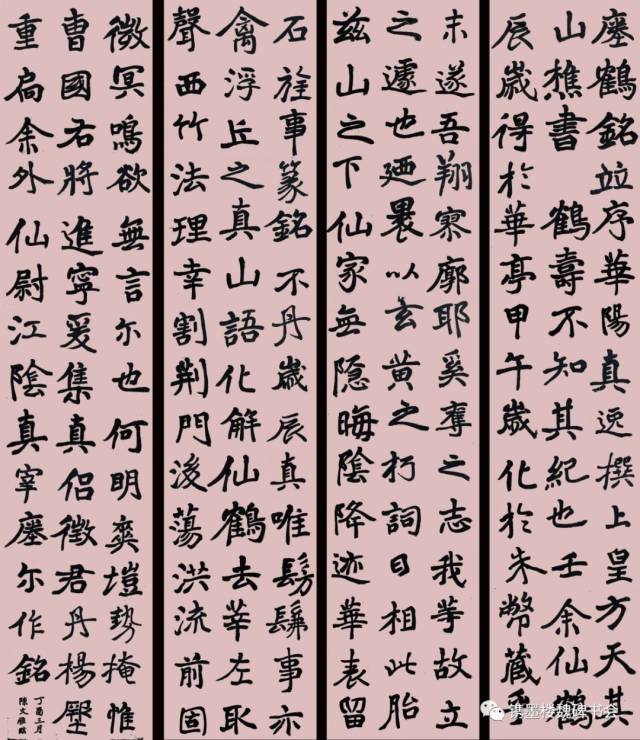 瘞鶴銘竝序華陽真逸撰上皇方天其
山樵書 鶴壽不知其紀也壬余仙鶴
辰歲得於華亭甲午歲化於朱幣藏乎
未遂吾翔寥廓耶奚奪之志我等故立
之遽也廼裹以玄黃之朽詞曰相此胎
茲山之下仙家無隱晦陰降迹華表留
石旌事篆銘不丹歲辰真唯髣髴事亦
禽浮丘之真山語化解仙鶴去莘左取
聲西竹法理幸割荆門後蕩洪流前固
微冥鳴欲無言尔也何明爽塏勢掩惟
曹國右將進寧爰集真侶徵君丹楊
重扃余外仙尉江陰真宰瘞尔作銘
丁酉三月
陳文雁臨
墨楼魏碑书会